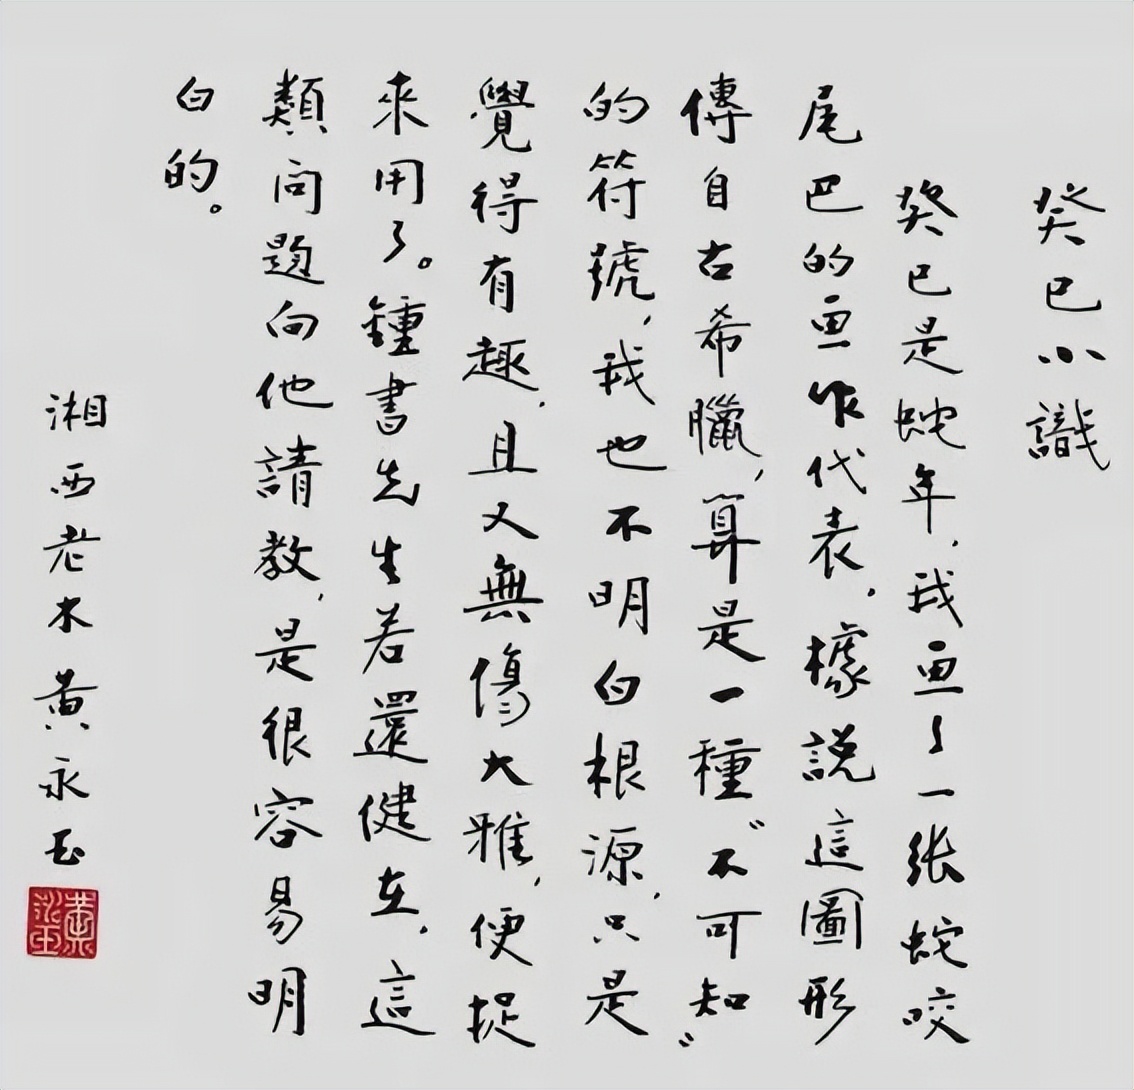 癸巳小識
癸巳是蛇年，我画了一张蛇咬
尾巴的画作代表。據説這圖形
傳自古希臘，算是一種“不可知”
的符號，我也不明白根源，只是
覺得有趣，且又無傷大雅，便捉
來用了。鍾書先生若還健在，這
類问題向他請教，是很容易明
白的。
湘西老木黄永玉
黄永玉